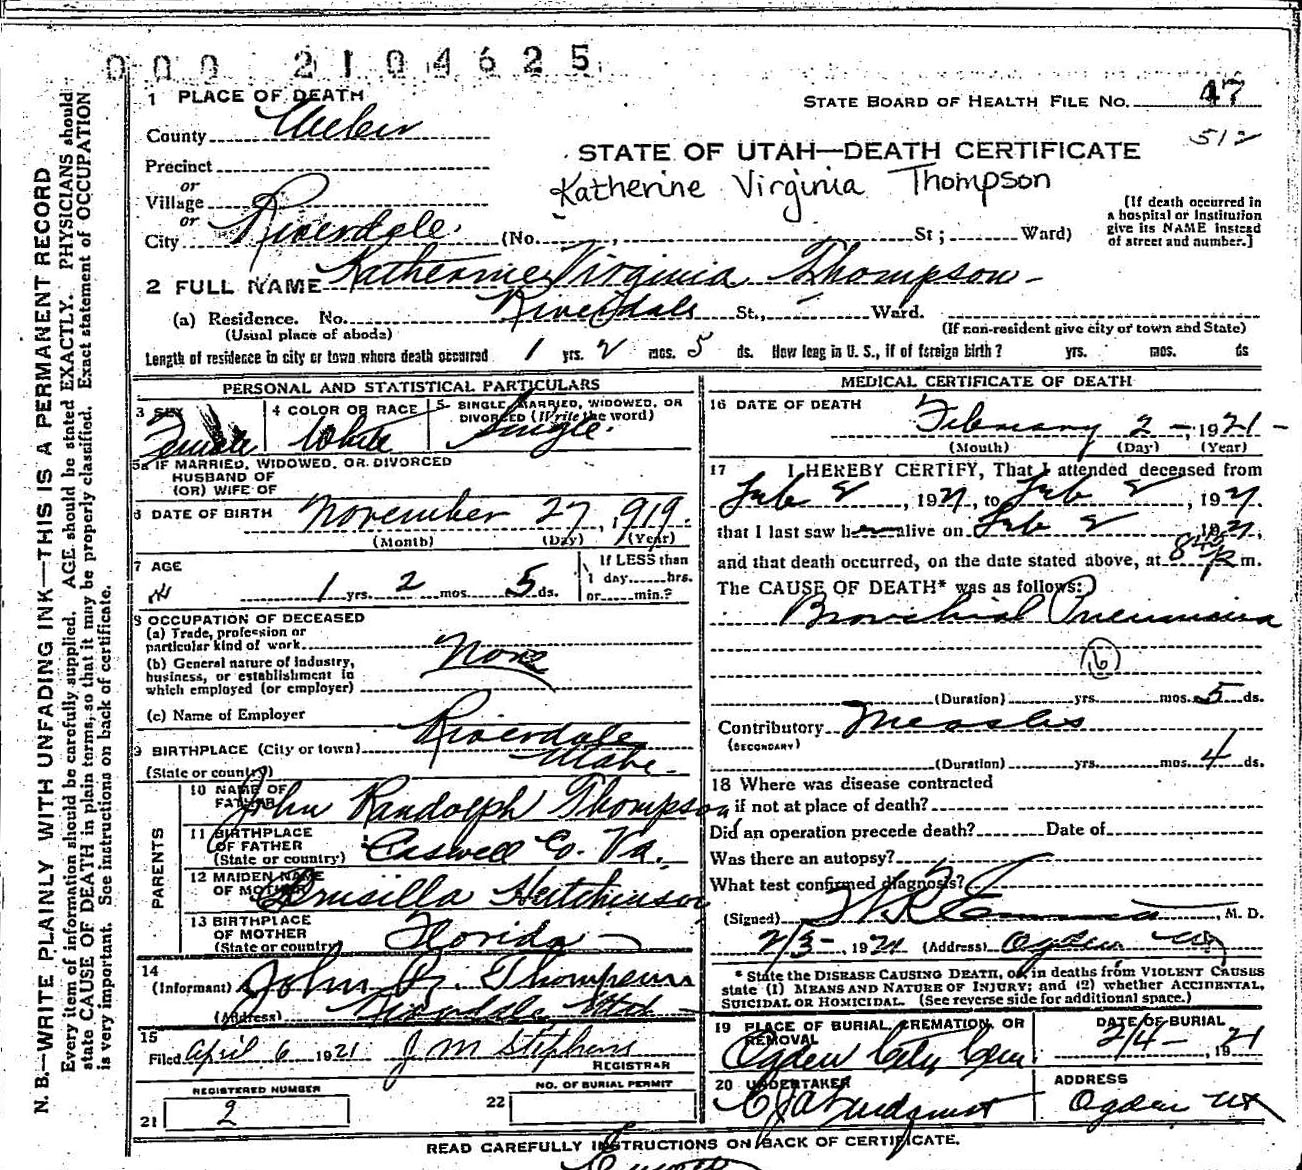 000 2104625
1 PLACE OF DEATH
STATE BOARD OF HEALTH FILE NO. 47
County Weber
512
STATE OF UTAH—DEATH CERTIFICATE
Precinct
or
Katherine Virginia Thompson
Village
or
City Riverdale. (No. , St ; Ward)
[If death occurred in
a hospital or institution
give its NAME instead
of street and number.]
2 FULL NAME Katherine Virginia Thompson
(a) Residence. No. Riverdale St., Ward.
(Usual place of abode) (If non-resident give city or town and State)
Length of residence in city or town where death occurred 1 yrs. 2 mos. 5 ds. How long in U. S., if of foreign birth? yrs. mos. ds
PERSONAL AND STATISTICAL PARTICULARS
3 SEX 4 COLOR OR RACE 5 SINGLE, MARRIED, WIDOWED, OR
DIVORCED (Write the word)
Female White Single.
5a IF MARRIED, WIDOWED, OR DIVORCED
HUSBAND OF
(OR) WIFE OF
6 DATE OF BIRTH November 27, 1919.
(Month) (Day) (Year)
7 AGE 1 yrs. 2 mos. 5 ds.
If LESS than
1 day hrs.
or min.?
8 OCCUPATION OF DECEASED
(a) Trade, profession or
particular kind of work None
(b) General nature of industry,
business, or establishment in
which employed (or employer)
(c) Name of Employer
9 BIRTHPLACE (City or town) Riverdale
(State or country) Utah.
PARENTS
10 NAME OF
FATHER John Randolph Thompson
11 BIRTHPLACE
OF FATHER
(State or country) Caswell Co. Va.
12 MAIDEN NAME
OF MOTHER Drusilla Hutchinson
13 BIRTHPLACE
OF MOTHER
(State or country) Florida
14
(Informant) John R. Thompson
(Address) Riverdale Utah
15
Filed April 6 1921 J M Stephens
REGISTRAR
REGISTERED NUMBER
21 2
NO. OF BURIAL PERMIT
22
MEDICAL CERTIFICATE OF DEATH
16 DATE OF DEATH
February 2 , 1921
(Month) (Day) (Year)
17 I HEREBY CERTIFY, That I attended deceased from
Feb 2 , 1921, to Feb 2 , 1921
that I last saw her alive on Feb 2 1921,
and that death occurred, on the date stated above, at 8 40 p m.
The CAUSE OF DEATH* was as follows:
Bronchial Pneumonia
(6)
(Duration) yrs. mos. 5 ds.
Contributory Measles
(SECONDARY)
(Duration) yrs. mos. 4 ds.
18 Where was disease contracted
if not at place of death?
Did an operation precede death? Date of
Was there an autopsy?
What test confirmed diagnosis?
(Signed) , M. D.
2/3 1921 (Address) Ogden Ut
* State the DISEASE CAUSING DEATH, or, in deaths from VIOLENT CAUSES
state (1) MEANS AND NATURE OF INJURY; and (2) whether ACCIDENTAL,
SUICIDAL OR HOMICIDAL. (See reverse side for additional space.)
19 PLACE OF BURIAL, CREMATION, OR
REMOVAL
Ogden City Cem
DATE OF BURIAL
2/4 1921
20 UNDERTAKER
ADDRESS
Ogden Ut
READ CAREFULLY INSTRUCTIONS ON BACK OF CERTIFICATE.
N. B.—WRITE PLAINLY WITH UNFADING INK—THIS IS A PERMANENT RECORD
Every item of information should be carefully supplied. AGE should be stated EXACTLY. PHYSICIANS should
state CAUSE OF DEATH in plain terms, so that it may be properly classified. Exact statement of OCCUPATION
is very important. See instructions on back of certificate.